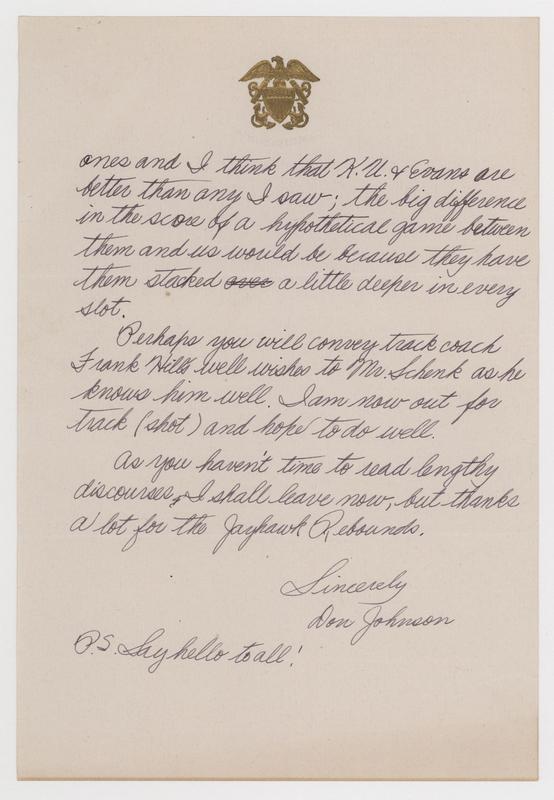 ones and I think that K.U. & Evans are
better than any I saw; the big difference
in the score of a hypothetical game between
them and us would be because they have
them stacked over a little deeper in every
slot.
Perhaps you will convey track coach
Frank Hill's well wishes to Mr. Schenk as he
knows him well. I am now out for
track (shot) and hope to do well.
As you haven't time to read lengthy
discourses, I shall leave now, but thanks
a lot for the Jayhawk Rebounds.
Sincerely
Don Johnson
P.S. Say hello to all!